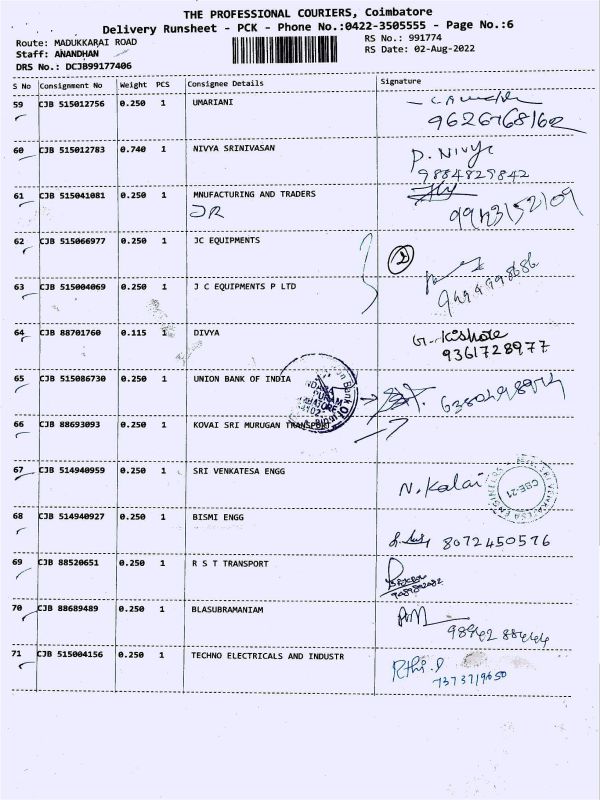 THE PROFESSIONAL COURIERS, Coimbatore
Delivery Runsheet - PCK - Phone No.:0422-3505555 - Page No.:6
Route: MADUKKARAI ROAD RS No.: 991774
Staff: ANANDHAN RS Date: 02-Aug-2022
DRS No.: DCJB99177406
S No Consignment No Weight PCS Consignee Details Signature
59 CJB 515012756 0.250 1 UMARIANI
9626768162
60 CJB 515012783 0.740 1 NIVYA SRINIVASAN P. Nivya
9884829842
61 CJB 515041081 0.250 1 MNUFACTURING AND TRADERS
JR 9943152109
62 CJB 515066977 0.250 1 JC EQUIPMENTS 2
63 CJB 515004069 0.250 1 J C EQUIPMENTS P LTD
64 CJB 88701760 0.115 1 DIVYA G. Kishore
9361728977
65 CJB 515086730 0.250 1 UNION BANK OF INDIA
66 CJB 88693093 0.250 1 KOVAI SRI MURUGAN TRANSPORT
67 CJB 514940959 0.250 1 SRI VENKATESA ENGG N. Kalai
CBE-21
68 CJB 514940927 0.250 1 BISMI ENGG
8072450576
69 CJB 88520651 0.250 1 R S T TRANSPORT
70 CJB 88689489 0.250 1 BLASUBRAMANIAM
71 CJB 515004156 0.250 1 TECHNO ELECTRICALS AND INDUSTR
7373719650